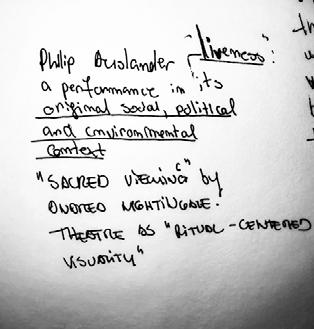 Philip Auslander "liveness":
a performance in "its
original social, political
and environmental
context
"SACRED VIEWING" by
NIGHTINGALE.
THEATRE AS "RITUAL-CENTERED
VISUALITY"